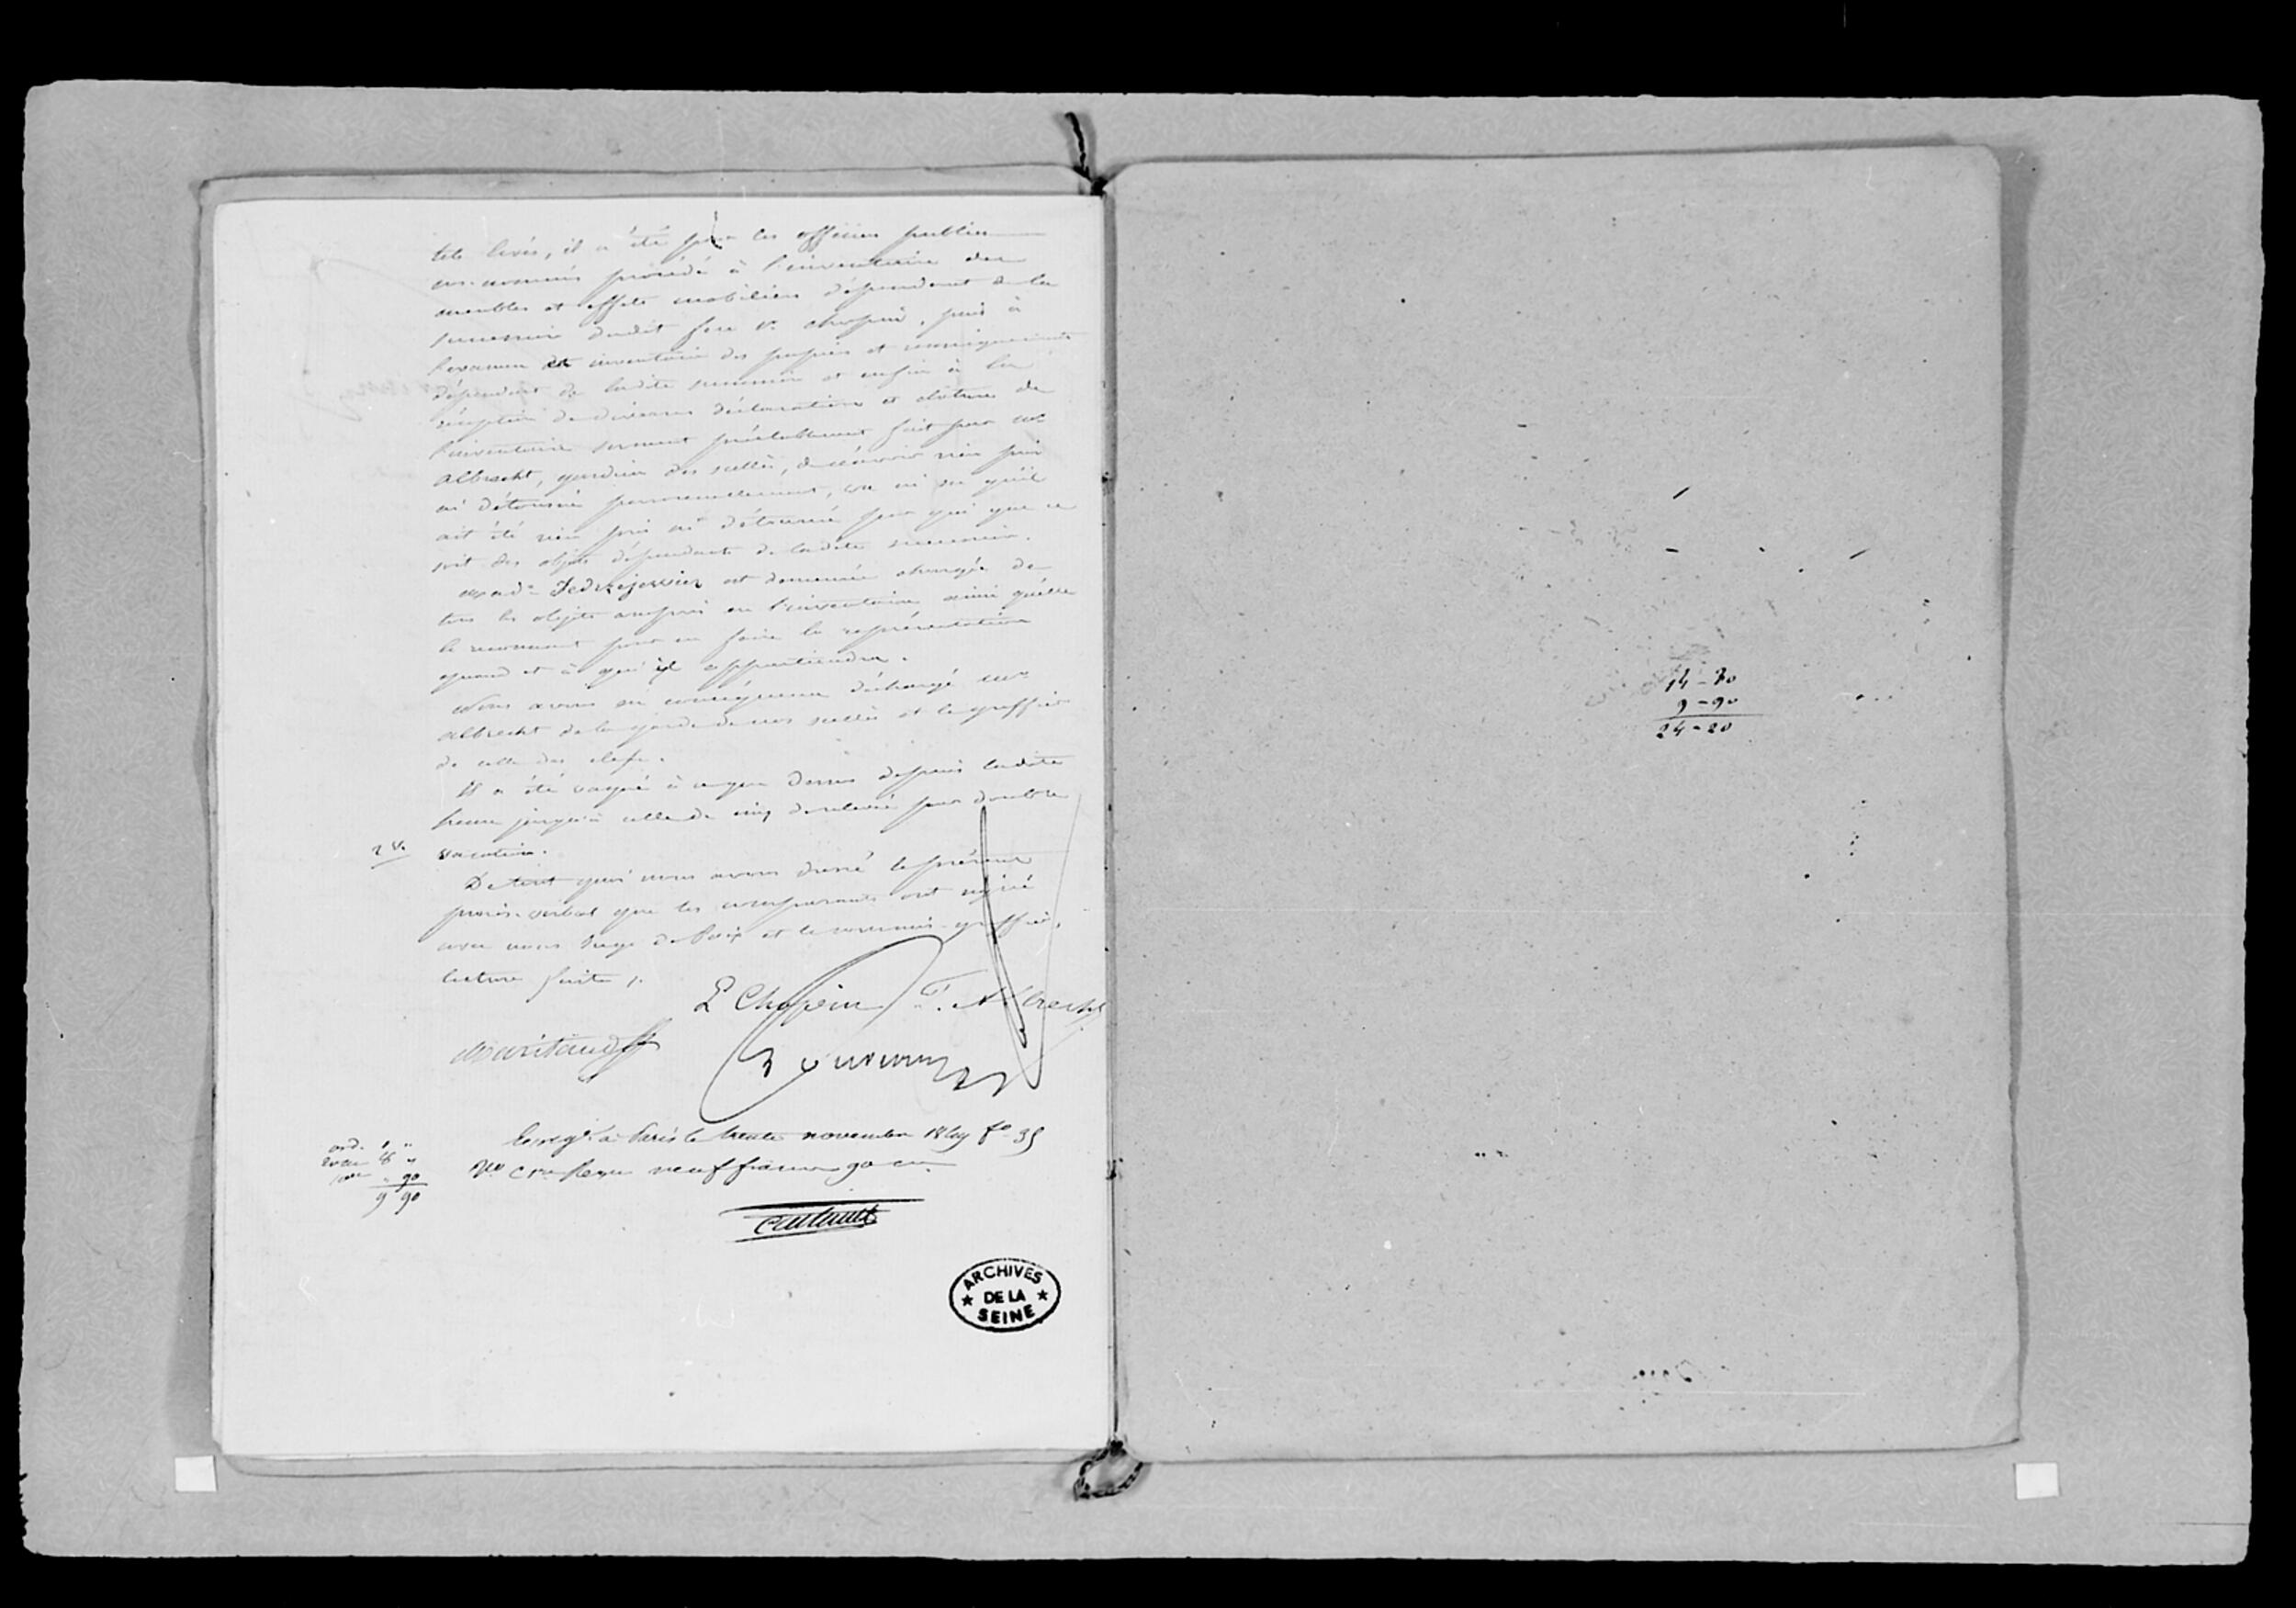 tels levés, il a été par les officiers publics
sus-nommés procédé à l'inventaire des
meubles et effets mobiliers dépendant de la
succession dudit feu Sr. Chopin, puis à
l'examen et inventaire des papiers et renseignements
dépendant de ladite succession et enfin à la
réception de diverses déclarations et clôture de
l'inventaire serment préalablement fait par Mr
Albrecht, gardien des scellés, de n'avoir rien pris
ni détourné personnellement, vu ni su qu'il
ait été rien pris ni détourné par qui que ce
soit des objets dépendants de ladite succession.
Made Jedrzejewicz est demeurée chargée de
tous les objets compris en l'inventaire ainsi qu'elle
le reconnaît pour en faire la représentation
quand et à qui il appartiendra.
Nous avons en conséquence déchargé Mr
Albrecht de la garde de nos scellés et le greffier
de celle des clefs.
Il a été vaqué à ce que dessus depuis ladite
heure jusqu'à celle de cinq de relevée par double
2 V. vacation.
De tout quoi nous avons dressé le présent
procès-verbal que les comparants ont signé
avec nous Juge de Paix et le commis-greffier,
lecture faite /.
L Chopin T. Albrecht
Enregé à Paris le trente novembre 1849 fo 35
Vo Cre Reçu neuf francs 90 cen
90
9 90
ARCHIVES
DE LA
SEINE
14 - 30
9 - 90
24 - 20